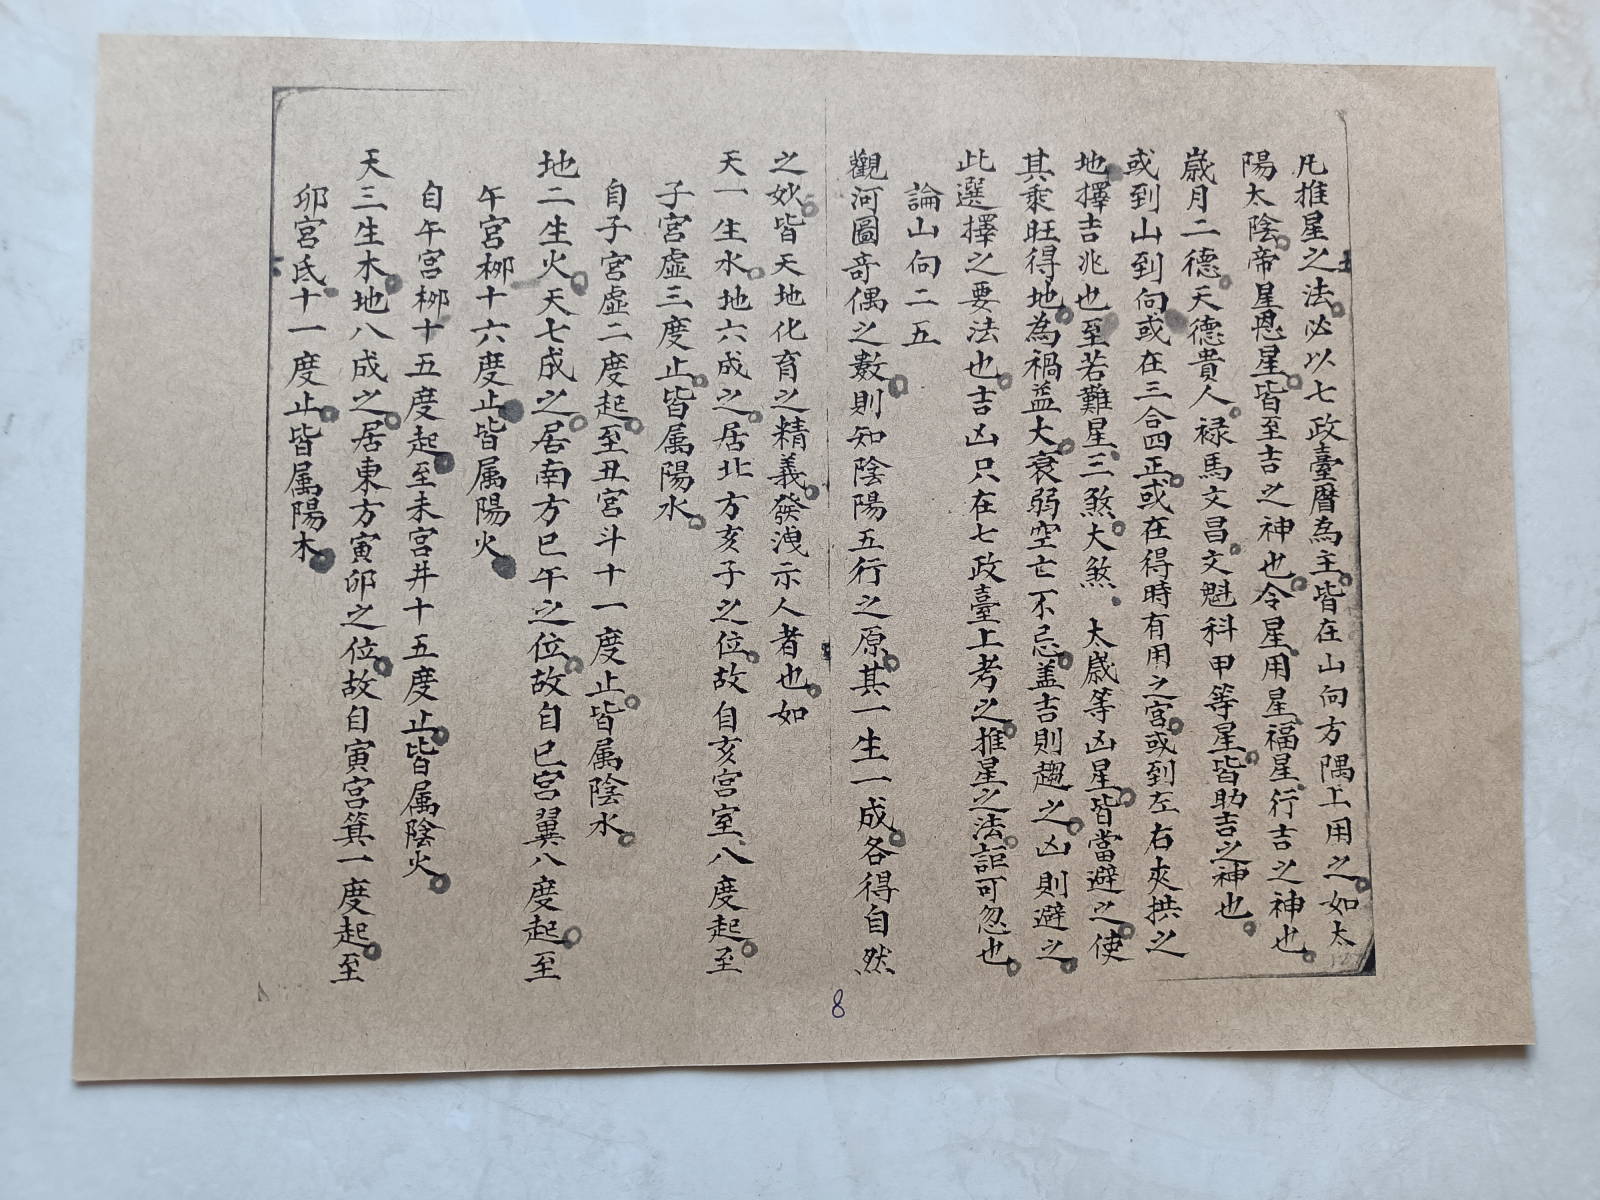 凡推星之法必以七政臺曆為主皆在山向方隅上用之如太
陽太陰帝星恩星皆至吉之神也令星用星福星行吉之神也
歲月二德天德貴人祿馬文昌文魁科甲等星皆助吉之神也
或到山到向或在三合四正或在得時有用之宮或到左右夾拱之
地擇吉兆也至若難星三煞大煞太歲等凶星皆當避之使
其乘旺得地為禍益大衰弱空亡不忌盖吉則趨之凶則避之
此選擇之要法也吉凶只在七政臺上考之推星之法詎可忽也
論山向二五
觀河圖奇偶之數則知陰陽五行之原其一生一成各得自然
之妙皆天地化育之精義發洩示人者也如
天一生水地六成之居北方亥子之位故自亥宮室八度起至
子宮虛三度止皆属陽水
自子宮虛二度起至丑宮斗十一度止皆属陰水
地二生火天七成之居南方巳午之位故自巳宮翼八度起至
午宮栁十六度止皆属陽火
自午宮栁十五度起至未宮井十五度止皆属陰火
天三生木地八成之居東方寅卯之位故自寅宮箕一度起至
卯宮氐十一度止皆属陽木
8